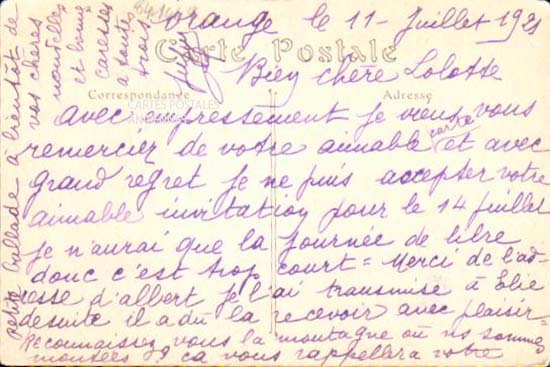 Orange le 11 - Juillet 1921
Carte Postale
Bien chère Lolotte
Correspondance
Adresse
CARTES POSTALES
avec empressement je viens vous
remercier de votre aimable carte et avec
grand regret je ne puis accepter votre
aimable invitation pour le 14 juillet
je n'aurai que la journée de libre
donc c'est trop court = Merci de l'ad-
resse d'albert je l'ai transmise à Elie
desuite il a dû la recevoir avec plaisir -
Reconnaissez vous la montagne où ns sommes
montées ? ça vous rappellera votre
petite ballade à bientôt de
vos chères
nouvelles
et bonne
caresses
a toutes
trois